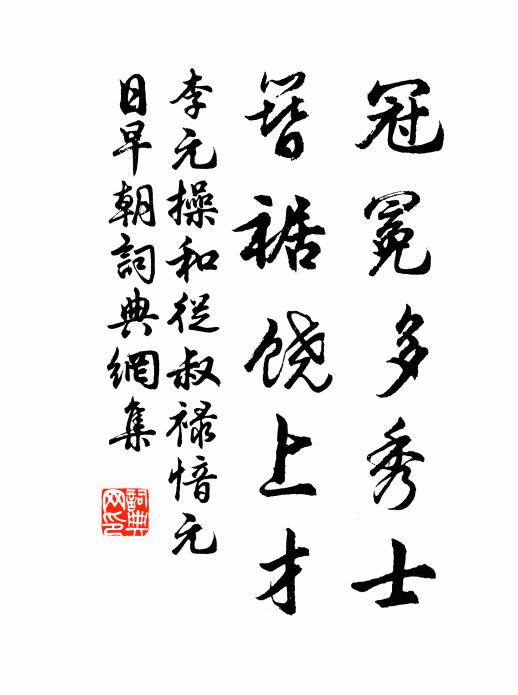 冠冕多秀士
簪裾饶上才
李元操和從叔禄愔元
日早朝詞典網集
詞典網印